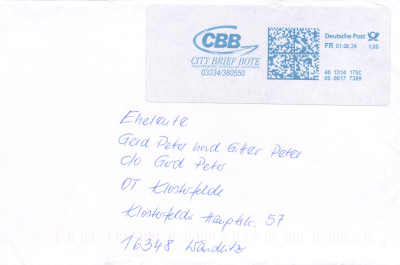 CBB
CITY BRIEF BOTE
03334/380550
Deutsche Post
FR 01.08.24 1,00
40 1314 175C
00 0017 7389
Eheleute
Gerd Peter und Gitta Peter
c/o Gerd Peter
OT Klosterfelde
Klosterfelder Hauptstr. 57
16348 Wandlitz